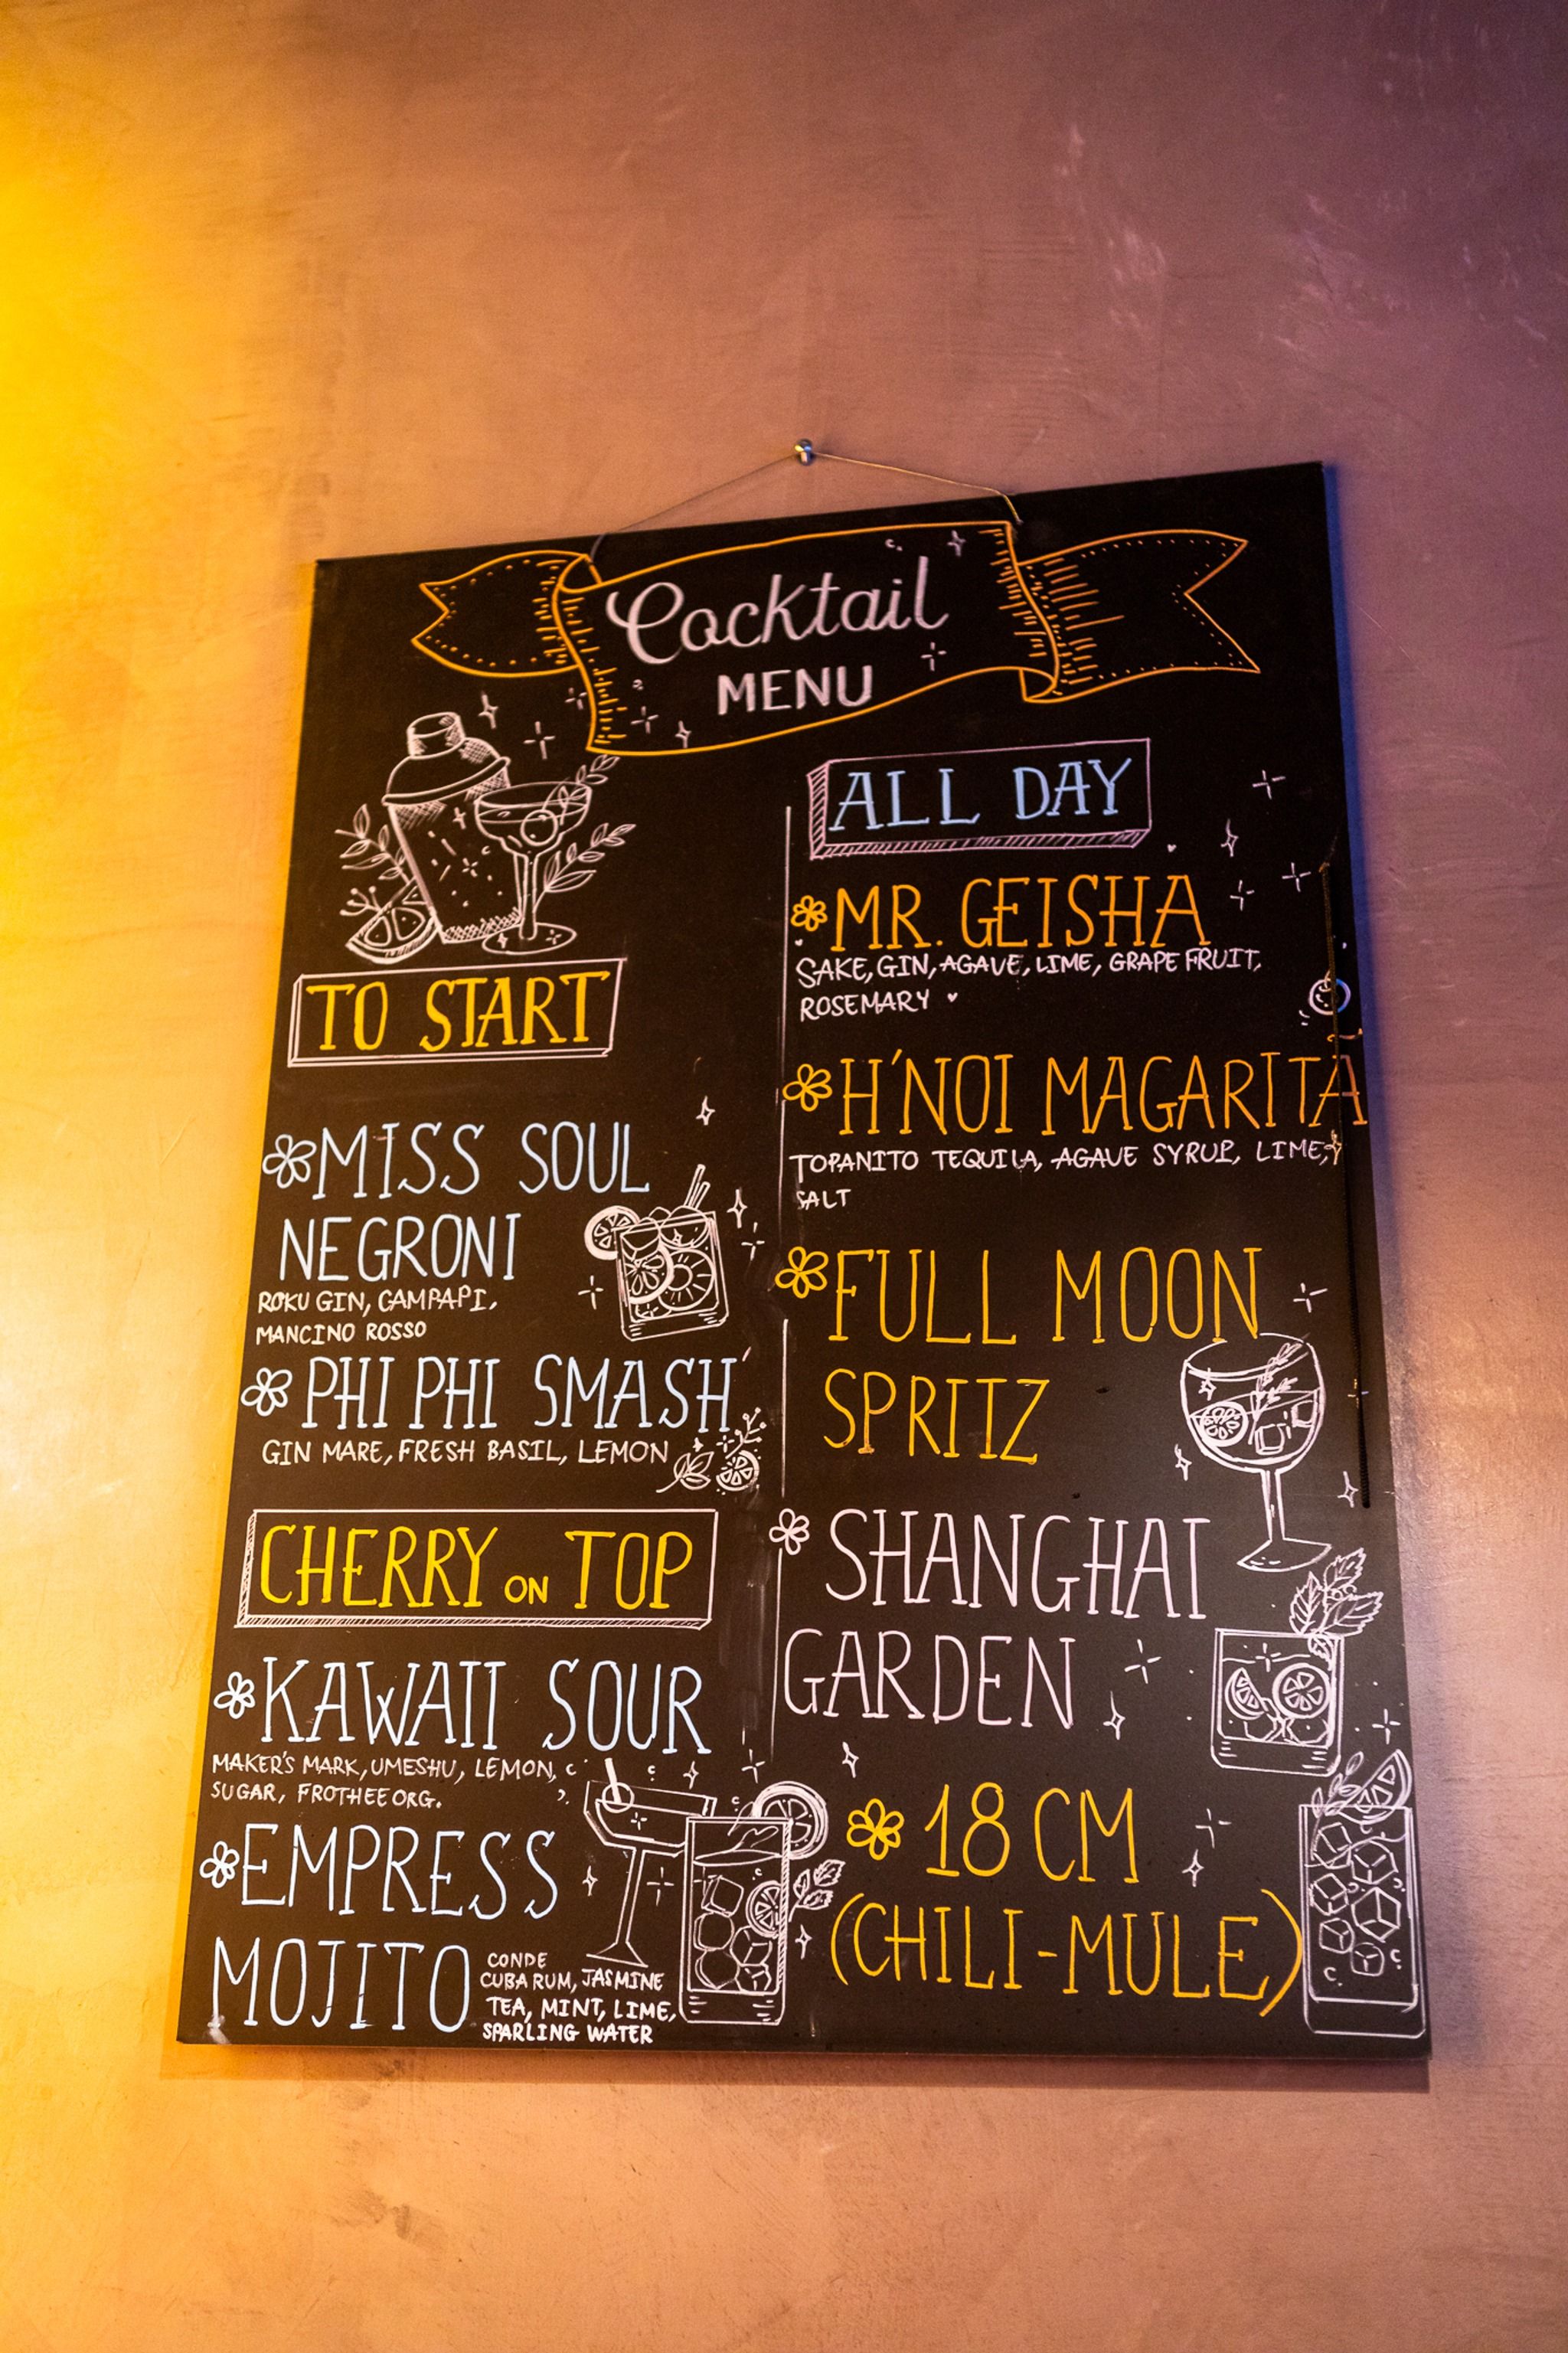 Cocktail
MENU
TO START
MISS SOUL
NEGRONI
ROKU GIN, CAMPAPI,
MANCINO ROSSO
PHI PHI SMASH
GIN MARE, FRESH BASIL, LEMON
CHERRY ON TOP
KAWAII SOUR
MAKER'S MARK, UMESHU, LEMON,
SUGAR, FROTHEE ORG.
EMPRESS
MOJITO
CONDE
CUBA RUM, JASMINE
TEA, MINT, LIME,
SPARLING WATER
ALL DAY
MR. GEISHA
SAKE, GIN, AGAVE, LIME, GRAPE FRUIT,
ROSEMARY
H'NOI MAGARITA
TOPANITO TEQUILA, AGAVE SYRUP, LIME,
SALT
FULL MOON
SPRITZ
SHANGHAI
GARDEN
18 CM
(CHILI-MULE)